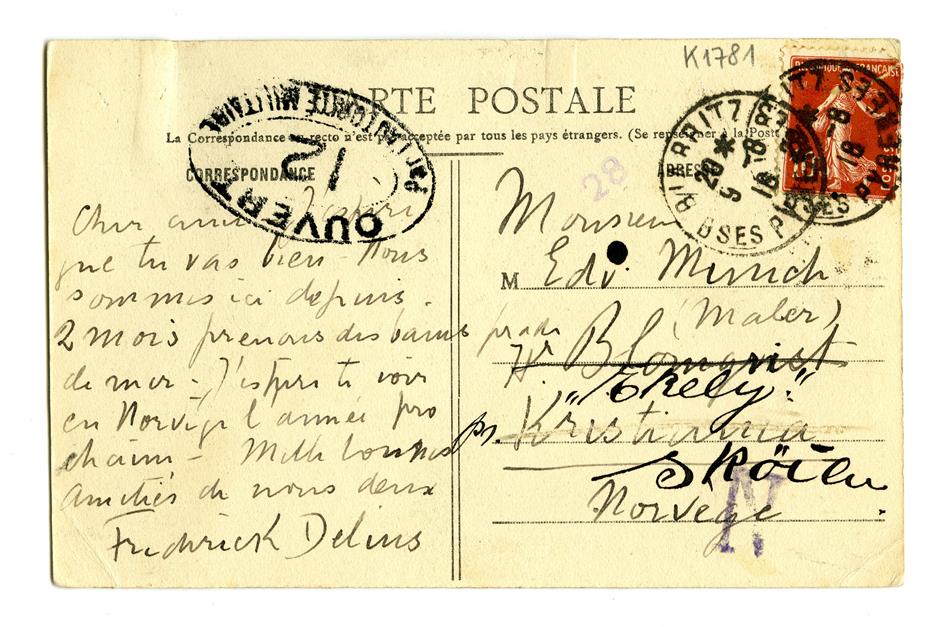 K1781
CARTE POSTALE
La Correspondance au recto n'est pas acceptée par tous les pays étrangers. (Se renseigner à la Poste
CORRESPONDANCE
ADRESSE
OUVERT
PAR L'AUTORITÉ MILITAIRE
12
28
RÉPUBLIQUE FRANÇAISE
BIARRITZ
20 * 8-8 18
BSES PYRENEES
Cher ami J'espère
que tu vas bien - Nous
sommes ici depuis
2 mois prenons des bains
de mer - J'espère te voir
en Norvège l'année pro
chaine - Mille bonnes
amitiés de nous deux
Frederick Delius
Monsieur
M Edv. Munch
(Maler)
Blomqvist
"Ekely".
Kristiania
pr. Sköien
Norvège
N